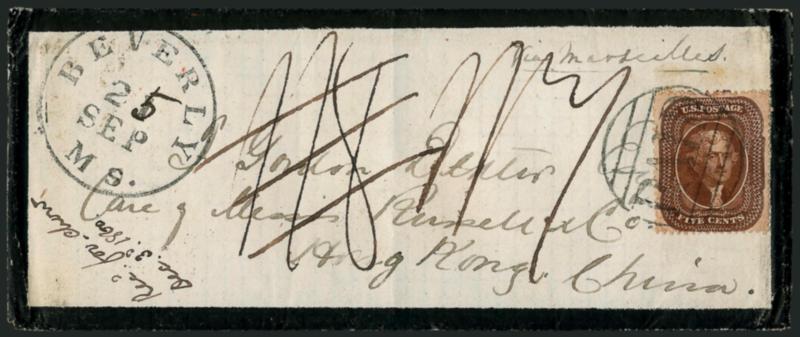 BEVERLY
25
SEP
MS.
via Marseilles.
118
113
U.S. POSTAGE
FIVE CENTS
Gordon Dexter
Care of Messrs Russell & Co
Hong Kong. China.
Dec. 3. 1860